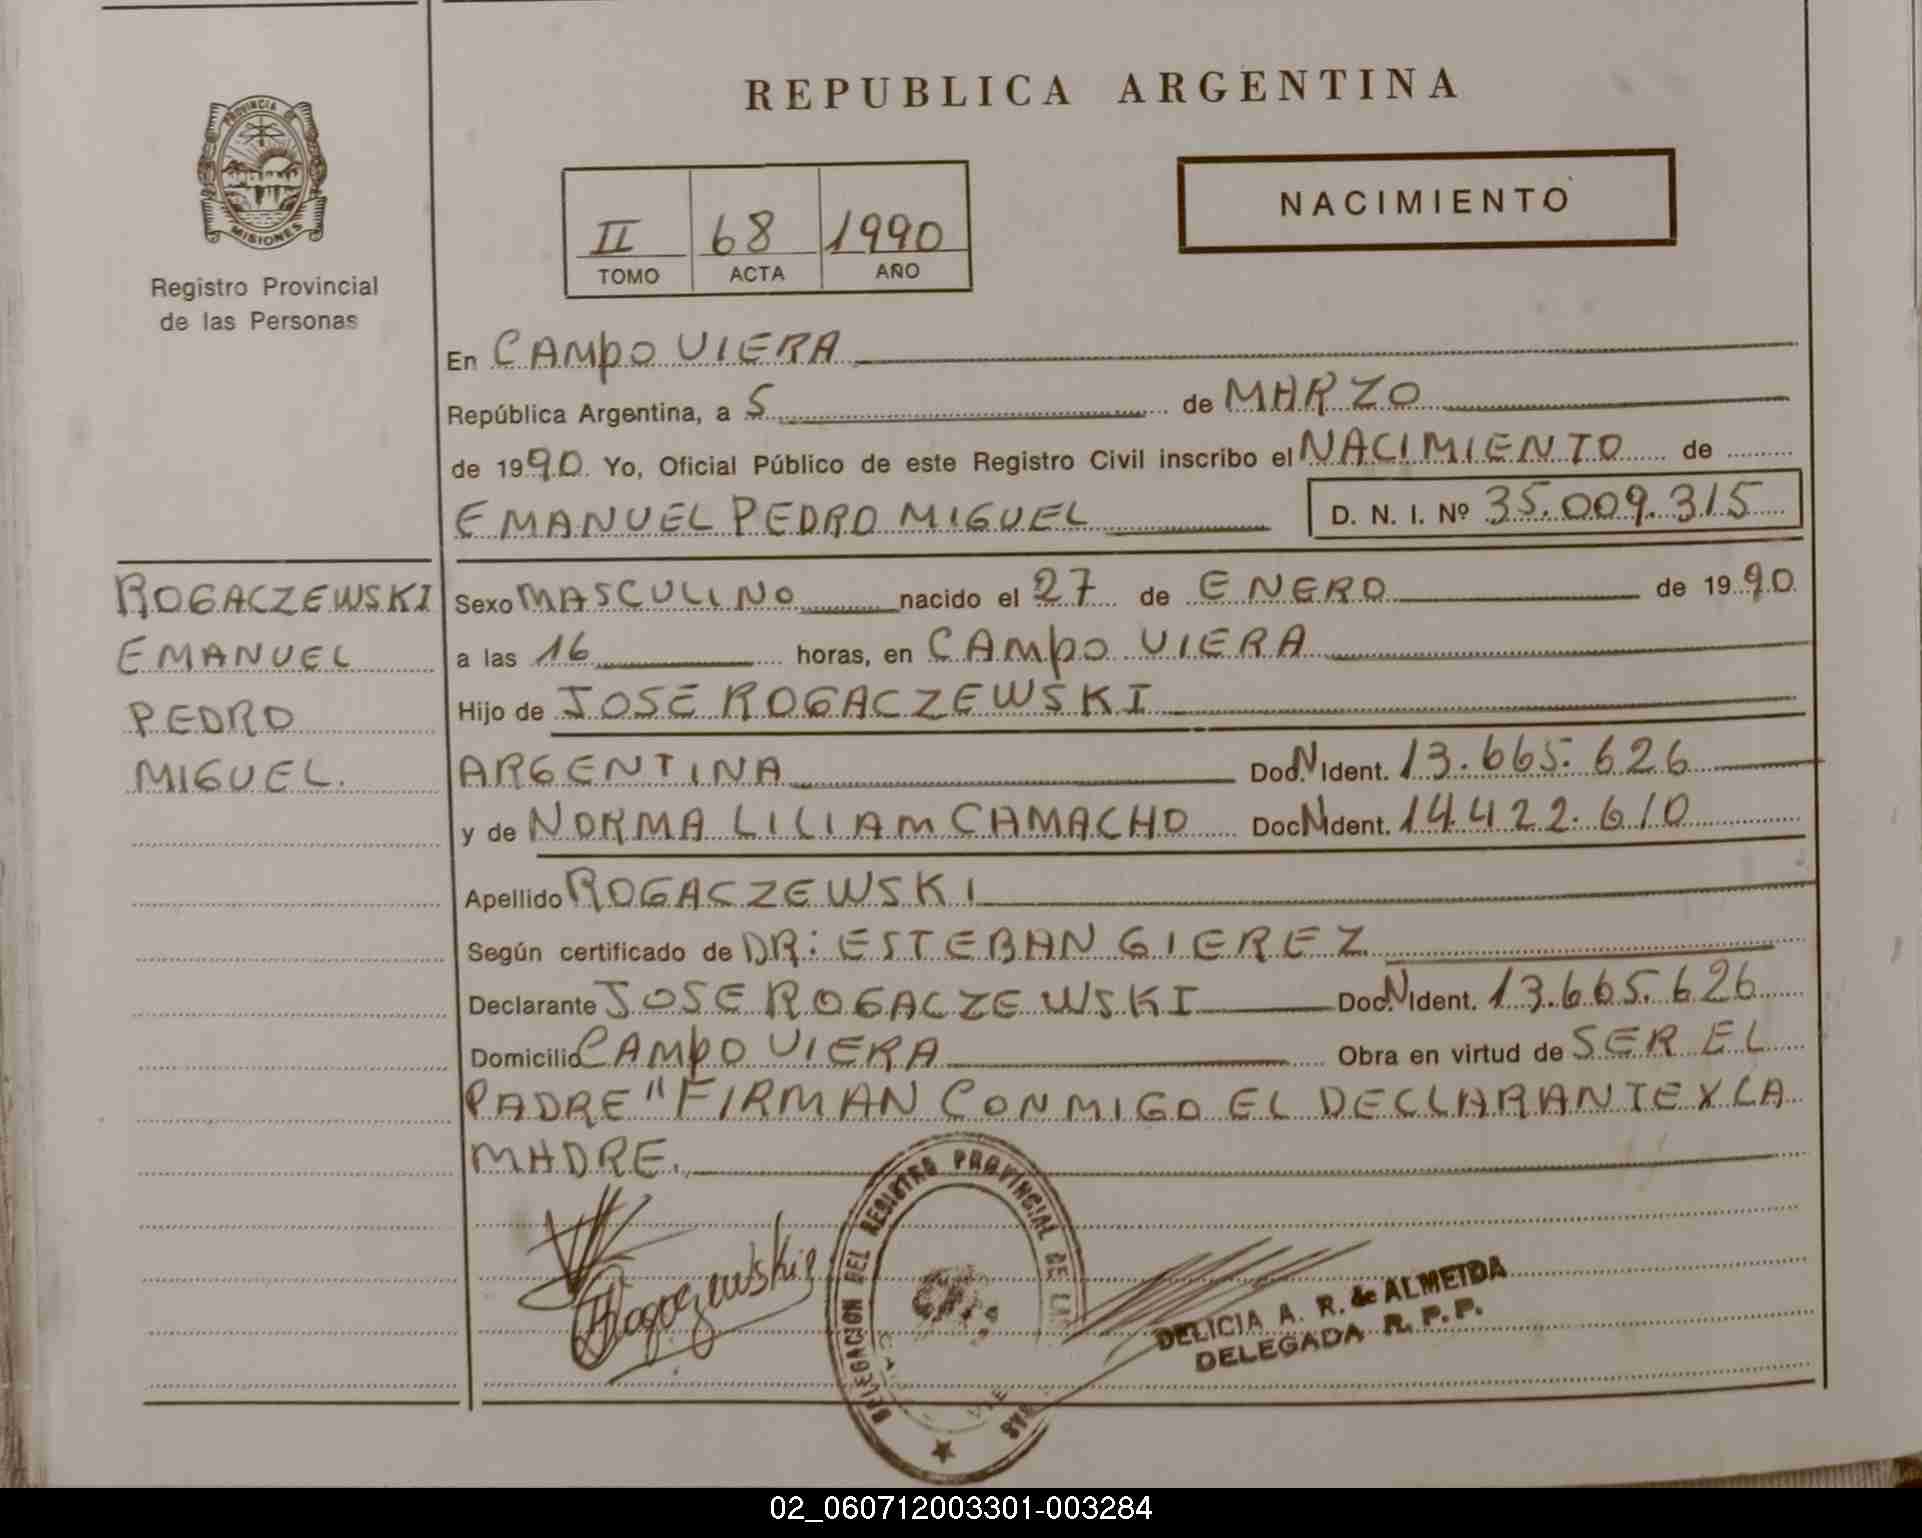 REPUBLICA ARGENTINA
PROVINCIA DE
MISIONES
Registro Provincial
de las Personas
NACIMIENTO
II 68 1990
TOMO ACTA AÑO
En CAMPO VIERA
República Argentina, a 5 de MARZO
de 1990. Yo, Oficial Público de este Registro Civil inscribo el NACIMIENTO de
EMANUEL PEDRO MIGUEL D. N. I. Nº 35.009.315
ROGACZEWSKI
EMANUEL
PEDRO
MIGUEL.
Sexo MASCULINO nacido el 27 de ENERO de 1990
a las 16 horas, en CAMPO VIERA
Hijo de JOSE ROGACZEWSKI
ARGENTINA Doc. N Ident. 13.665.626
y de NORMA LILIAM CAMACHO Doc N Ident. 14.422.610
Apellido ROGACZEWSKI
Según certificado de DR: ESTEBAN GIEREZ
Declarante JOSE ROGACZEWSKI Doc. N Ident. 13.665.626
Domicilio CAMPO VIERA Obra en virtud de SER EL
PADRE" FIRMAN CONMIGO EL DECLARANTE Y LA
MADRE.
DELEGACION DEL REGISTRO PROVINCIAL DE LAS
DELICIA A. R. de ALMEIDA
DELEGADA R. P. P.
02_060712003301-003284